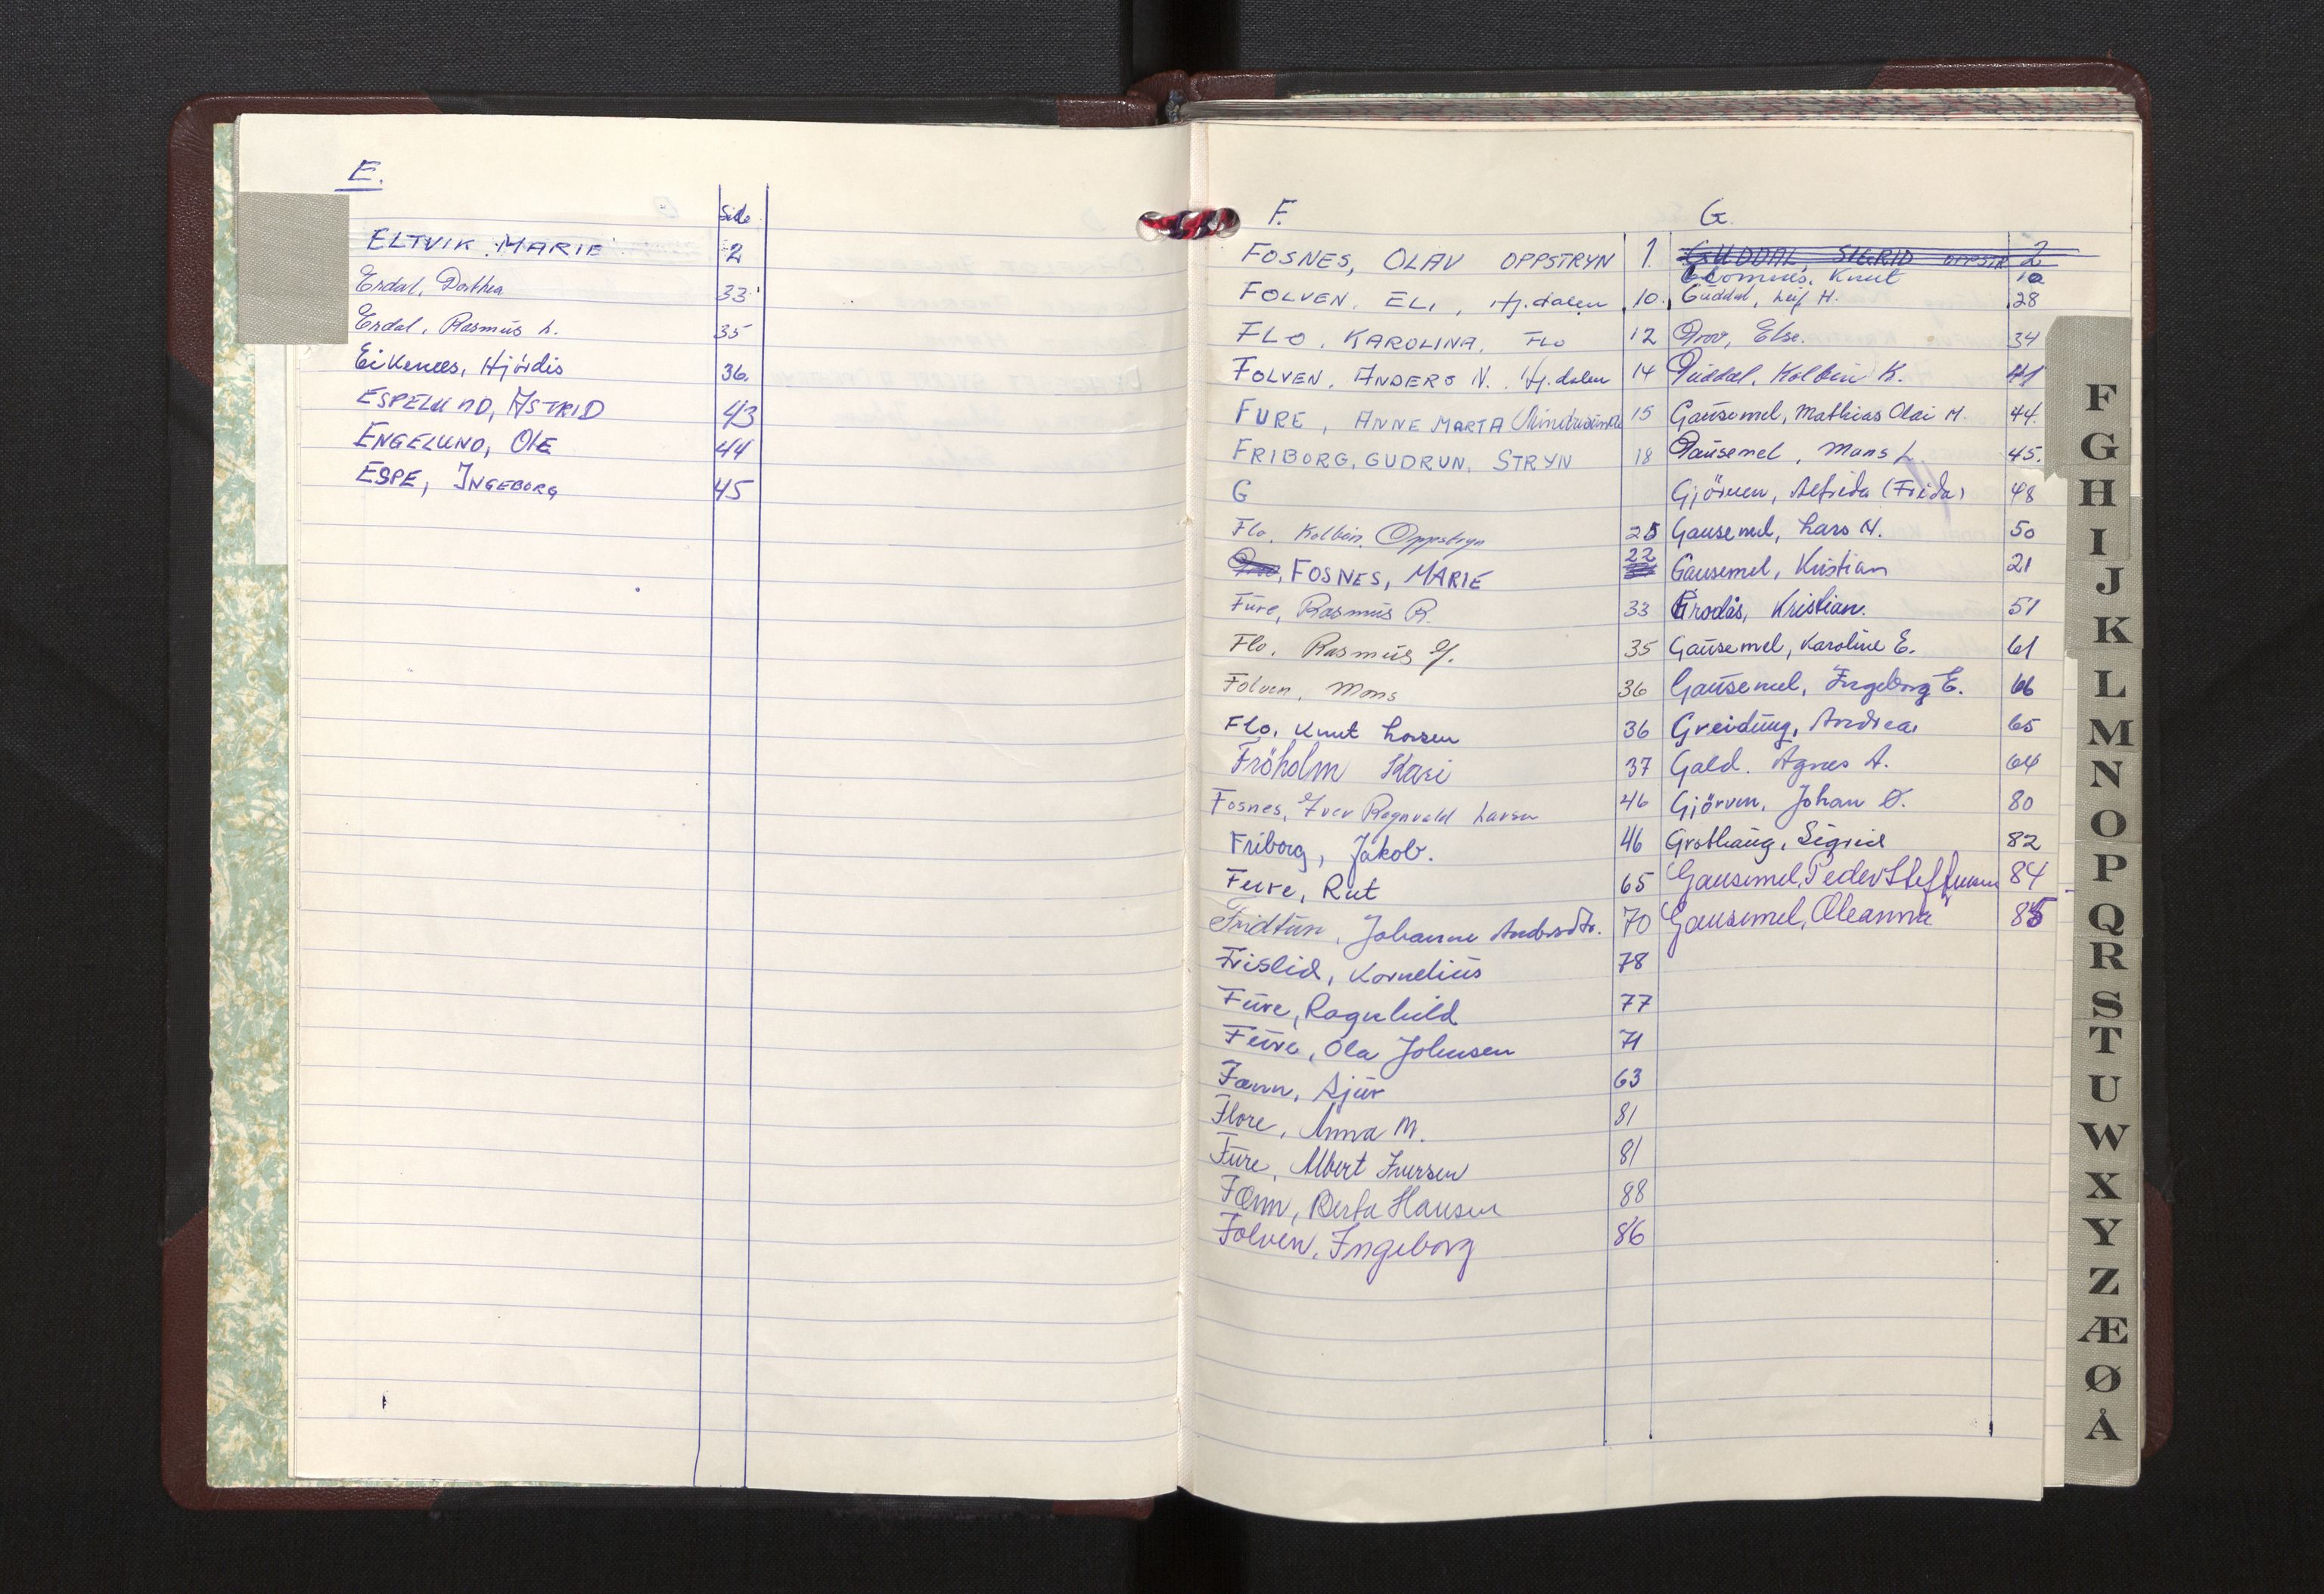 E.
Side
ELTVIK MARIE 2
Erdal, Dorthea 33
Erdal, Rasmus L. 35
Eikenes, Hjördis 36.
ESPELUND, ASTRID 43
ENGELUND, OLE 44
ESPE, INGEBORG 45
F.
FOSNES, OLAV OPPSTRYN 1.
FOLVEN, ELI, Hj.dalen 10.
FLO, KAROLINA, FLO 12
FOLVEN, ANDERS N. Hj.dalen 14
FURE, ANNE MARTA 15
FRIBORG, GUDRUN, STRYN 18
G
Flo, Kolbein, Oppstryn
FOSNES, MARIE 22
Füre, Rasmus R. 33
Flo, Rasmus 35
Folven, Mons 36
Flo, Knut Larsen 36
Fröholm Kari 37
Fosnes, Iver Ragnvald Larsen 46
Friborg, Jakob. 46
Fure, Rut 65
Fridtun, Johanne Andersdtr. 70
Frislid, Kornelius 78
Füre, Ragnhild 77
Füre, Ola Johnsen 71
Fænn, Sjur 63
Flore, Anna M. 81
Füre, Albert Iversen 81
Fænn, Berta Hansen 88
Folven, Ingeborg 86
G.
GUDDAL SIGRID OPPSTR 2
Knut 10
Guddal, Leif H. 28
Grov, Else. 34
Guddal, Kolbein K. 41
Gausemel, Mathias Olai M. 44.
Gausemel, Mons L. 45.
Gjörven, Alfrida (Frida) 48
Gausemel, Lars N. 50
Gausemel, Kristian 21
Grodås, Kristian. 51
Gausemel, Karoline E. 61
Gausemel, Ingeborg E. 66
Greidung, Andrea 65
Gald. Agnes A. 64
Gjörven, Johan O. 80
Grothaug, Sigrid 82
Gausemel, Peder Steffensen 84
Gausemel, Oleanna 85
F
G
H
I
J
K
L
M
N
O
P
Q
R
S
T
U
W
X
Y
Z
Æ
Ø
Å